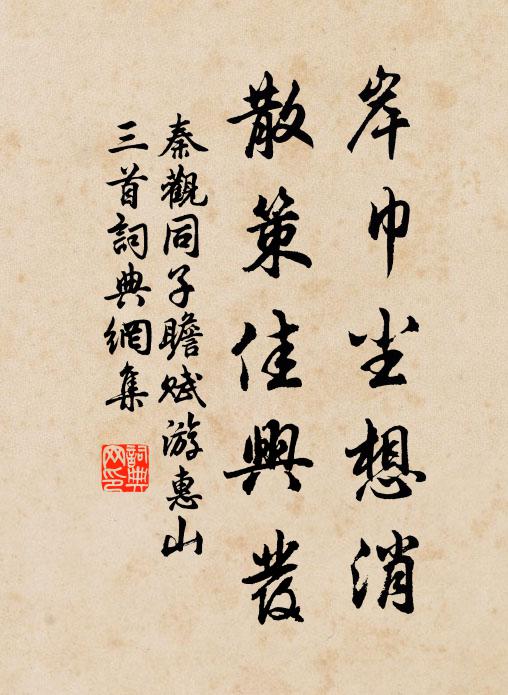 岸巾尘想消
散策佳興發
秦觀同子瞻赋游惠山
三首詞典網集
詞典
网印